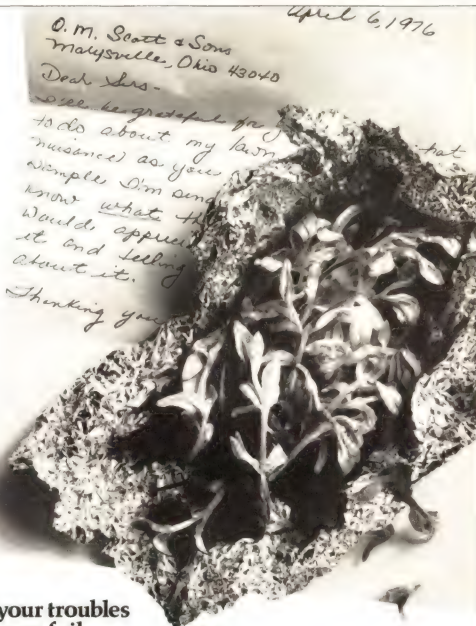 April 6, 1976
O. M. Scott & Sons
Marysville, Ohio 43040
Dear Sirs-
will be grateful for
to do about my lawn hat
nuisance) as you
sample I'm send
know what th
would apprec
it and telling
about it.
Thanking you
your troubles